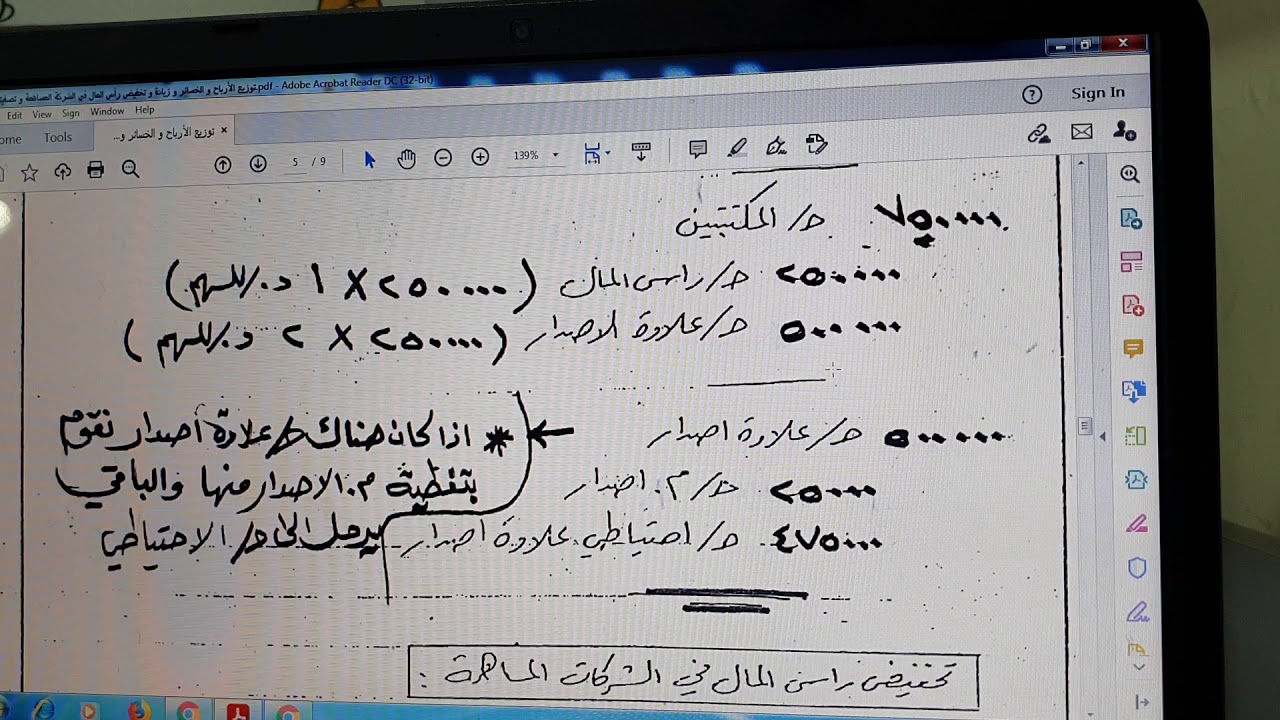 توزيع الأرباح و الخسائر و زيادة و تخفيض رأس المال في الشركة المساهمة و تصفية.pdf - Adobe Acrobat Reader DC (32-bit)
Edit View Sign Window Help
Tools
توزيع الأرباح و الخسائر و... ×
Sign In
5 / 9
139%
٧٥٠٠٠٠ ح/ المكتتبين
٢٥٠٠٠٠ ح/ راس المال (٢٥٠٠٠٠ X ١ د./للسهم)
٥٠٠٠٠٠ ح/ علاوة الاصدار (٢٥٠٠٠٠ X ٢ د./للسهم)
٥٠٠٠٠٠ ح/ علاوة اصدار
٢٥٠٠٠ ح/ م. اصدار
٤٧٥٠٠٠ ح/ احتياطي علاوة اصدار
* اذا كان هناك ح/ علاوة أصدار نقوم
بتغطية م. الاصدار منها والباقي
يرحل الى ح/ الاحتياطي
تخفيض راس المال في الشركات المساهمة :